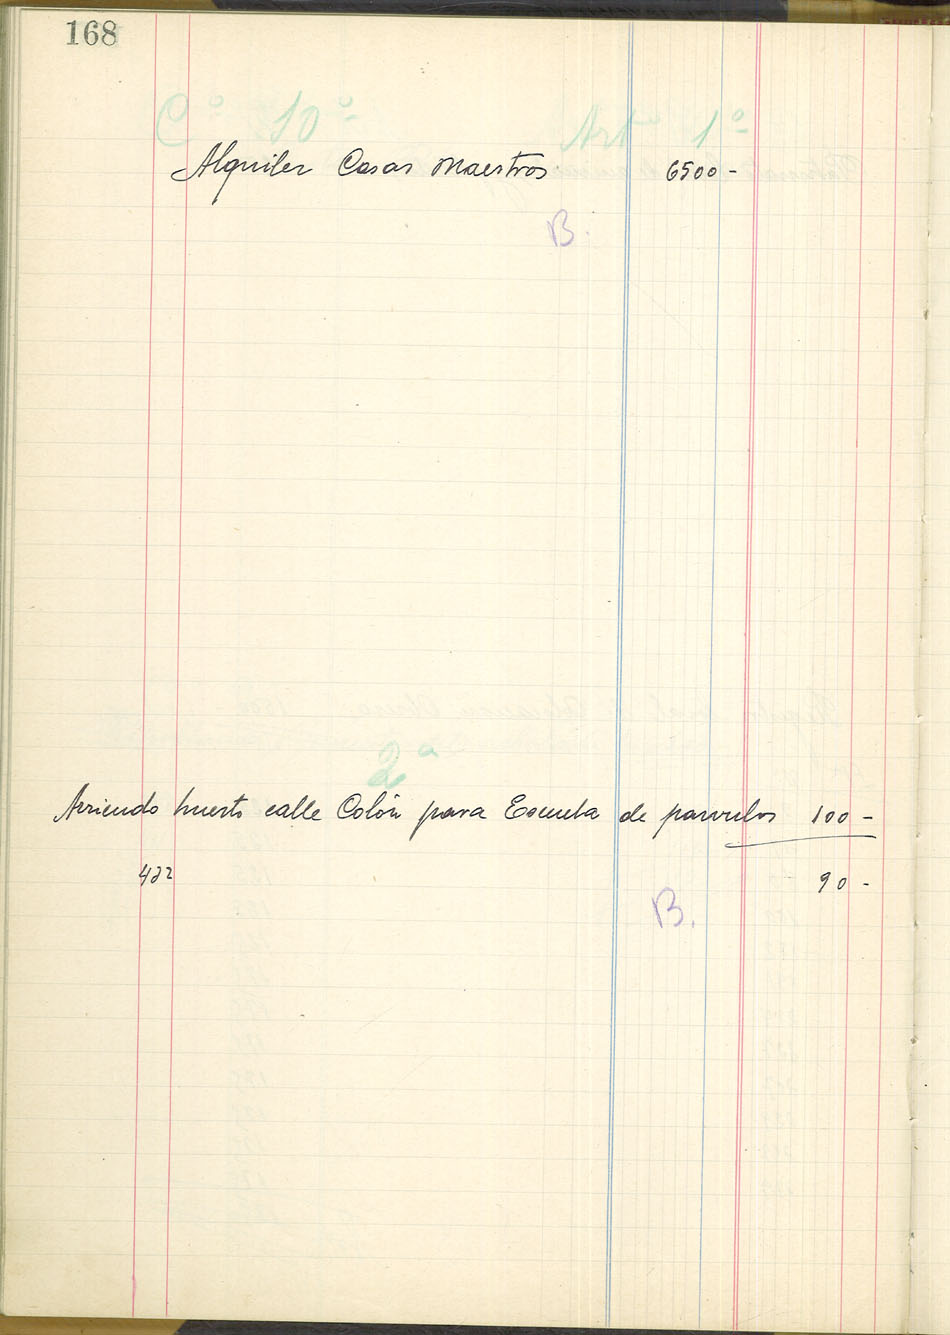 168
Cº 10º Artº 1º
Alquiler Casas Maestros 6500-
B.
2ª
Arriendo huerto calle Colón para Escuela de parvulos 100-
422 90-
B.